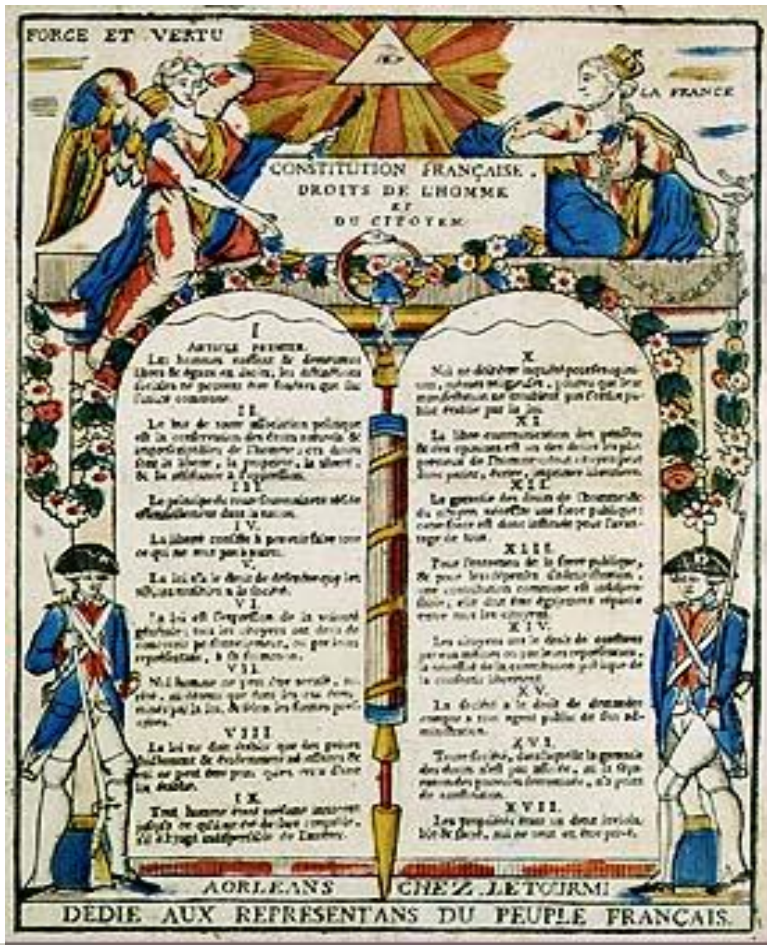 FORCE ET VERTU
LA FRANCE
CONSTITUTION FRANÇAISE.
DROITS DE L'HOMME
ET
DU CITOYEN
I
ARTICLE PREMIER.
Les hommes naissent & demeurent
libres & égaux en droits, les distinctions
sociales ne peuvent être fondées que sur
l'utilité commune.
II.
Le but de toute association politique
est la conservation des droits naturels &
imprescriptibles de l'homme; ces droits
sont la liberté, la propriété, la sûreté,
& la résistance à l'oppression.
III.
Le principe de toute souveraineté réside
essentiellement dans la nation.
IV.
La liberté consiste à pouvoir faire tout
ce qui ne nuit pas à autrui.
V.
La loi n'a le droit de défendre que les
actions nuisibles à la société.
VI.
La loi est l'expression de la volonté
générale; tous les citoyens ont droit de
concourir personnellement, ou par leurs
représentans, à sa formation.
VII.
Nul homme ne peut être accusé,
que dans les cas
par la loi, & selon les formes
VIII
La loi ne doit établir que des peines
strictement & évidemment
ne peut être puni qu'en vertu d'une
loi établie.
IX.
Tout homme étant présumé innocent
jusqu'à ce qu'il ait été déclaré coupable,
s'il est jugé indispensable de l'arrêter.
X.
Nul ne doit être inquiété pour ses opini-
ons, mêmes religieuses, pourvu que leur
manifestation ne trouble pas l'ordre pu-
blic établie par la loi.
XI.
La libre communication des pensées
& des opinions est un des droits les plus
précieux de l'homme; tout citoyen peut
donc parler, écrire, imprimer librement.
XII.
La garantie des droits de l'homme &
du citoyen nécessite une force publique;
cette force est donc instituée pour l'avan-
tage de tous.
XIII.
Pour l'entretien de la force publique,
& pour les dépenses d'administration,
une contribution commune est indispen-
sable; elle doit être également répartie
entre tous les citoyens.
XIV.
Les citoyens ont le droit de constater
par eux mêmes ou par leurs représentans,
la nécessité de la contribution publique de
la consentir librement.
XV.
La société a le droit de demander
compte à tout agent public de son ad-
ministration.
XVI.
Toute société, dans laquelle la garantie
des droits n'est pas assurée, ni la sépa-
ration des pouvoirs déterminée, n'a point
de constitution.
XVII.
Les propriétés étant un droit inviola-
ble & sacré, nul ne peut en être privé.
A ORLEANS CHEZ LETOURMI
DEDIE AUX REPRESENTANS DU PEUPLE FRANÇAIS.